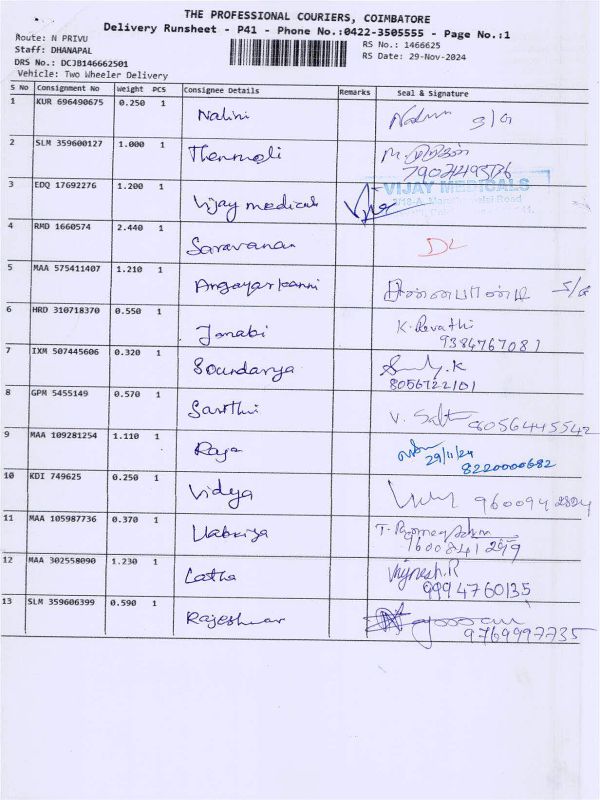 THE PROFESSIONAL COURIERS, COIMBATORE
Delivery Runsheet - P41 - Phone No.:0422-3505555 - Page No.:1
Route: N PRIVU
RS No.: 1466625
Staff: DHANAPAL
RS Date: 29-Nov-2024
DRS No.: DCJB146662501
Vehicle: Two Wheeler Delivery
S No Consignment No Weight PCS Consignee Details Remarks Seal & Signature
1 KUR 696490675 0.250 1 Nalini
2 SLM 359600127 1.000 1 Thenmoli
3 EDQ 17692276 1.200 1 Vijay medicals VIJAY MEDICALS
4 RMD 1660574 2.440 1 Saravanan DL
5 MAA 575411407 1.210 1 Angayarkanni
6 HRD 310718370 0.550 1 Janabi K. Revathi
9384767081
7 IXM 507445606 0.320 1 Soundarya
8056722101
8 GPM 5455149 0.570 1 Santhi 8056445542
9 MAA 109281254 1.110 1 Raja 29/11/24
8220000682
10 KDI 749625 0.250 1 Vidya
11 MAA 105987736 0.370 1
12 MAA 302558090 1.230 1 Latha Vignesh.R
9994760135
13 SLM 359606399 0.590 1 Rajeshwar
9769997735